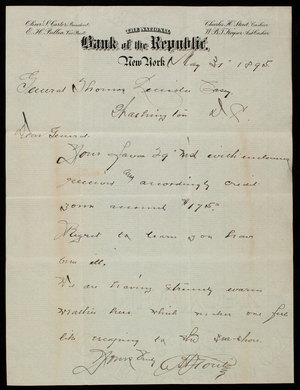 Oliver S. Carter, President.
E. H. Pullen, Vice Prest.
Charles H. Stout, Cashier.
W. B. T. Keyser, Asst. Cashier.
THE NATIONAL
Bank of the Republic,
New York, May 31st 1895
General Thomas Lincoln Casey
Washington D. C.
Dear General
Your favor 29th rec'd with enclosures
received accordingly credit
your account $175.00
Regret to learn you have
been ill.
We are having extremely warm
weather here which makes one feel
like escaping to the sea-shore.
Yours truly